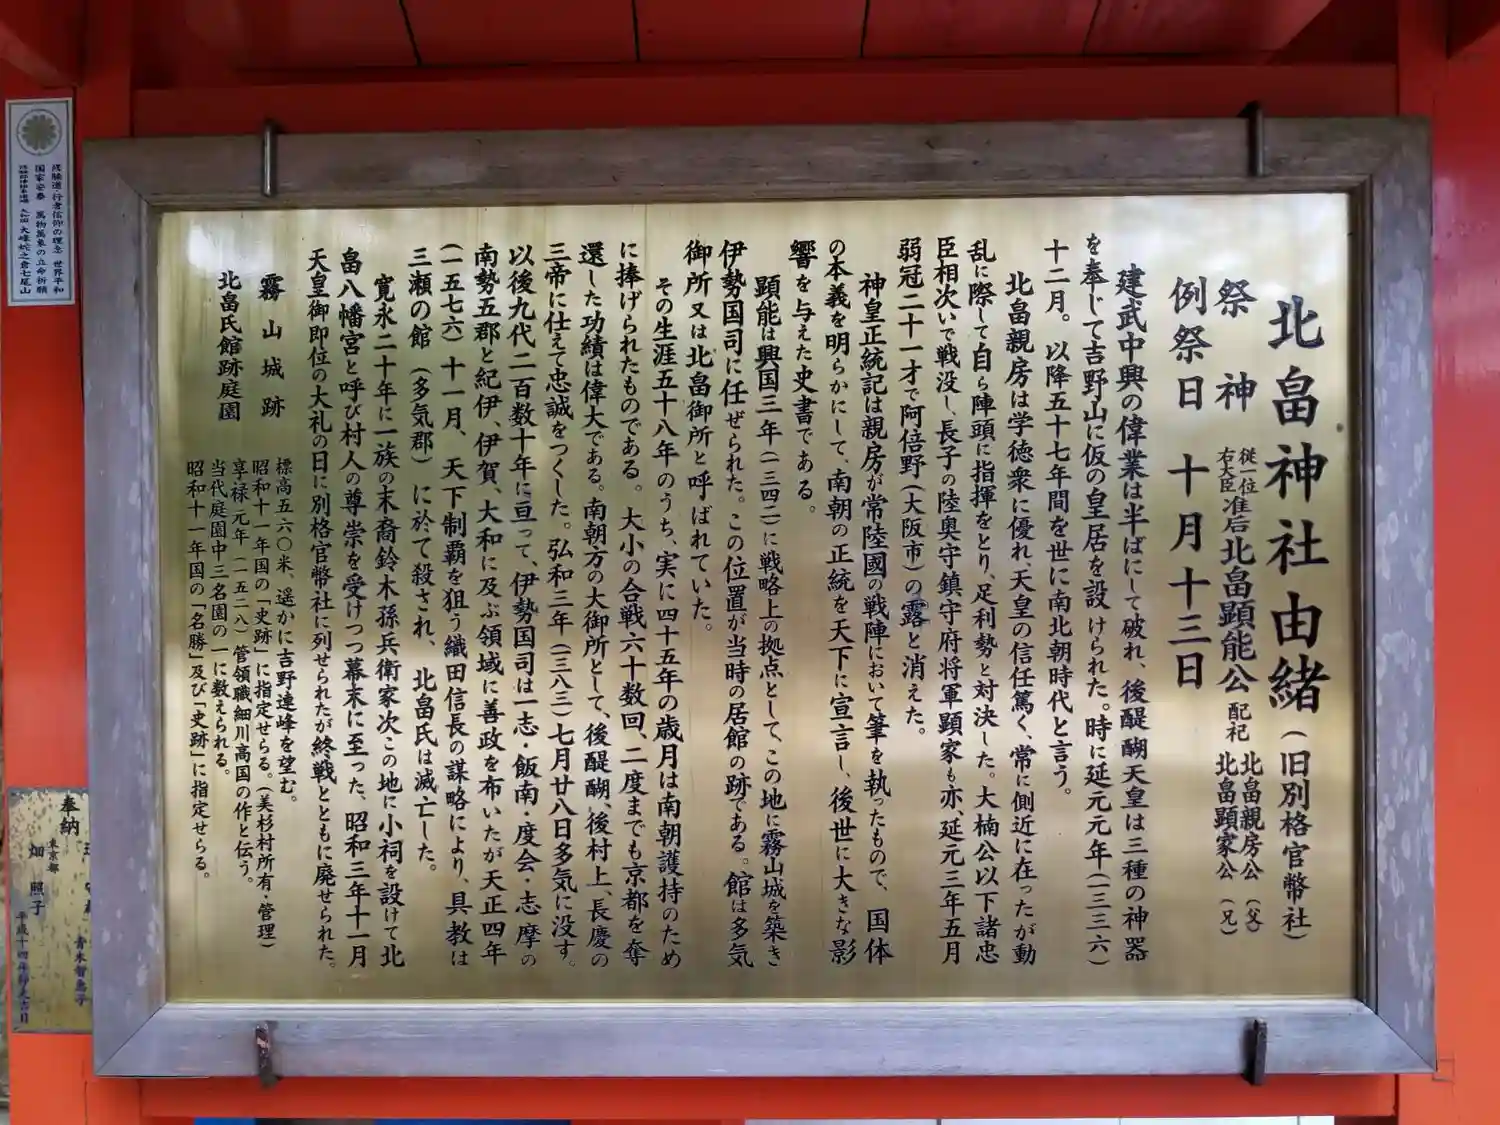 北畠神社由緒(旧別格官幣社)
祭神 従一位右大臣准后北畠顕能公 配祀 北畠親房公(父) 北畠顕家公(兄)
例祭日 十月十三日
建武中興の偉業は半ばにして破れ、後醍醐天皇は三種の神器
を奉じて吉野山に仮の皇居を設けられた。時に延元元年(一三三六)
十二月。以降五十七年間を世に南北朝時代と言う。
北畠親房は学徳衆に優れ、天皇の信任篤く、常に側近に在ったが動
乱に際して自ら陣頭に指揮をとり、足利勢と対決した。大楠公以下諸忠
臣相次いで戦没し、長子の陸奥守鎮守府将軍顕家も亦、延元三年五月
弱冠二十一才で阿倍野(大阪市)の露と消えた。
神皇正統記は親房が常陸國の戦陣において筆を執ったもので、国体
の本義を明らかにして、南朝の正統を天下に宣言し、後世に大きな影
響を与えた史書である。
顕能は興国三年(一三四二)に戦略上の拠点として、この地に霧山城を築き
伊勢国司に任ぜられた。この位置が当時の居館の跡である。館は多気
御所又は北畠御所と呼ばれていた。
その生涯五十八年のうち、実に四十五年の歳月は南朝護持のため
に捧げられたものである。大小の合戦六十数回、二度までも京都を奪
還した功績は偉大である。南朝方の大御所として、後醍醐、後村上、長慶の
三帝に仕えて忠誠をつくした。弘和三年(一三八三)七月廿八日多気に没す。
以後九代二百数十年に亘って、伊勢国司は一志・飯南・度会・志摩の
南勢五郡と紀伊、伊賀、大和に及ぶ領域に善政を布いたが天正四年
(一五七六)十一月、天下制覇を狙う織田信長の謀略により、具教は
三瀬の館(多気郡)に於て殺され、北畠氏は滅亡した。
寛永二十年に一族の末裔鈴木孫兵衛家次この地に小祠を設けて北
畠八幡宮と呼び村人の尊崇を受けつつ幕末に至った、昭和三年十一月
天皇御即位の大礼の日に別格官幣社に列せられたが終戦とともに廃せられた。
霧山城跡 標高五六〇米、遥かに吉野連峰を望む。
昭和十一年国の「史跡」に指定せらる。(美杉村所有・管理)
北畠氏館跡庭園 享禄元年(一五二八)管領職細川高国の作と伝う。
当代庭園中三名園の一に数えられる。
昭和十一年国の「名勝」及び「史跡」に指定せらる。
修験道・行者信仰の理念 世界平和
国家安泰 萬物萬象の立命祈願
大峰蛇之倉七尾山
奉納
東京都
畑照子
青木智恵子
平成十四年師走吉日